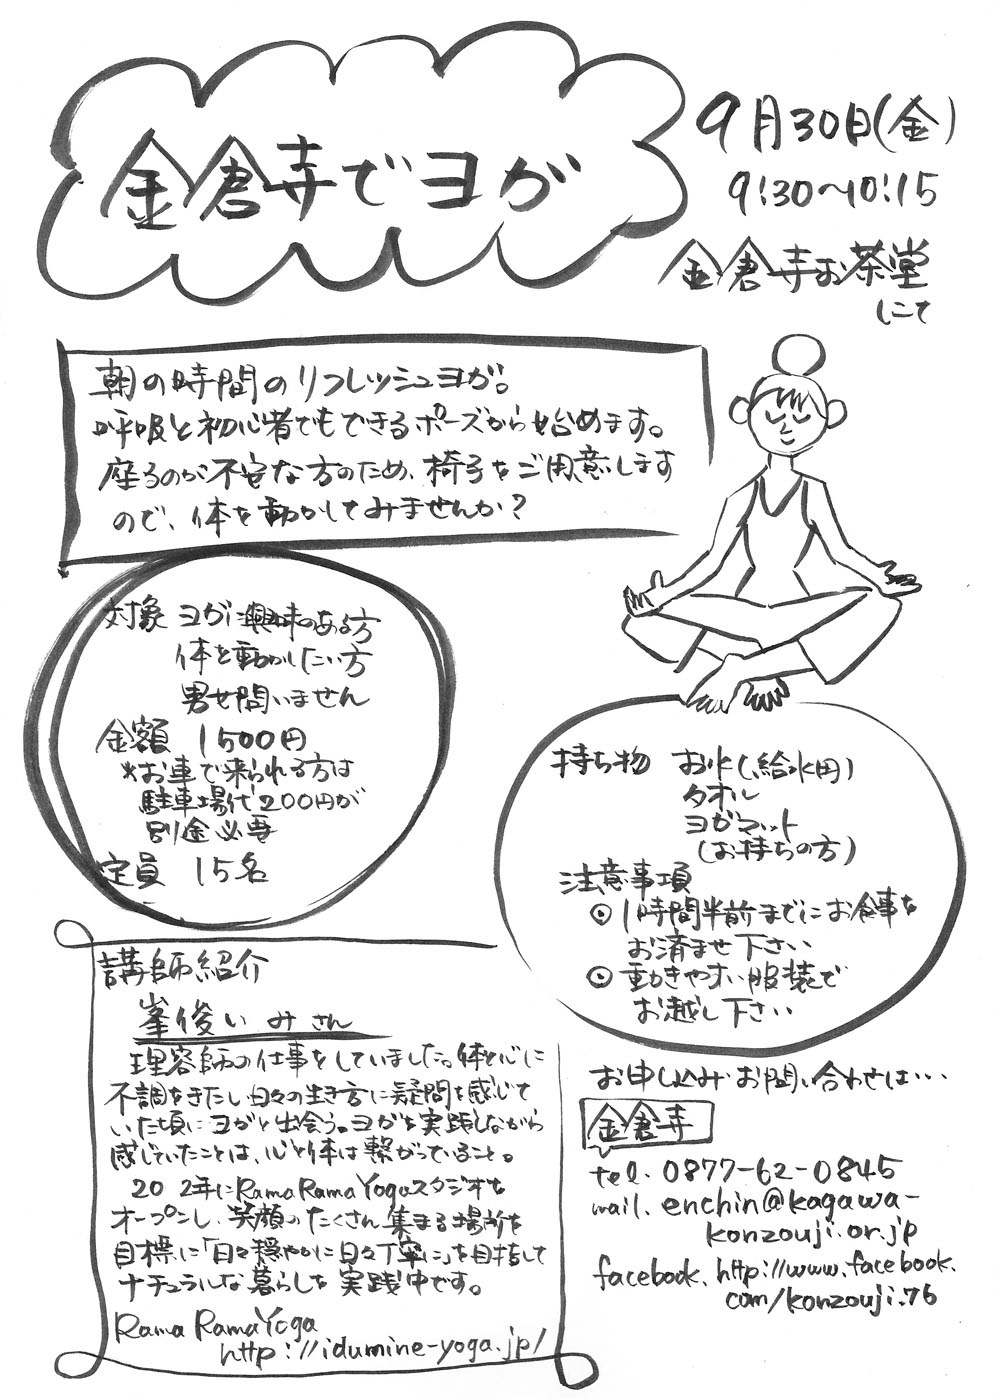 金倉寺でヨガ
9月30日(金)
9:30〜10:15
金倉寺お茶堂
にて
朝の時間のリフレッシュヨガ。
呼吸と初心者でもできるポーズから始めます。
座るのが不安な方のため、椅子もご用意します
ので、体を動かしてみませんか?
対象 ヨガに興味のある方
体を動かしたい方
男女問いません
金額 1500円
*お車で来られる方は
駐車場代200円が
別途必要
定員 15名
持ち物 お水(給水用)
タオル
ヨガマット
(お持ちの方)
注意事項
◎1時間半前までにお食事を
お済ませ下さい
◎動きやすい服装で
お越し下さい
講師紹介
峯俊いづみさん
理容師の仕事をしていました。体と心に
不調をきたし日々の生き方に疑問を感じて
いた頃にヨガと出会う。ヨガを実践しながら
感じていたことは、心と体は繋がっていること。
年にRama Rama Yogaスタジオを
オープンし、笑顔のたくさん集まる場所を
目標に「日々穏やかに日々丁寧に」を目指して
ナチュラルな暮らしを実践中です。
Rama Rama Yoga
http://idumine-yoga.jp/
お申し込みお問い合わせは…
金倉寺
tel. 0877-62-0845
mail. enchin@kagawa-
konzouji.or.jp
facebook. http://www.facebook.
com/konzouji.76